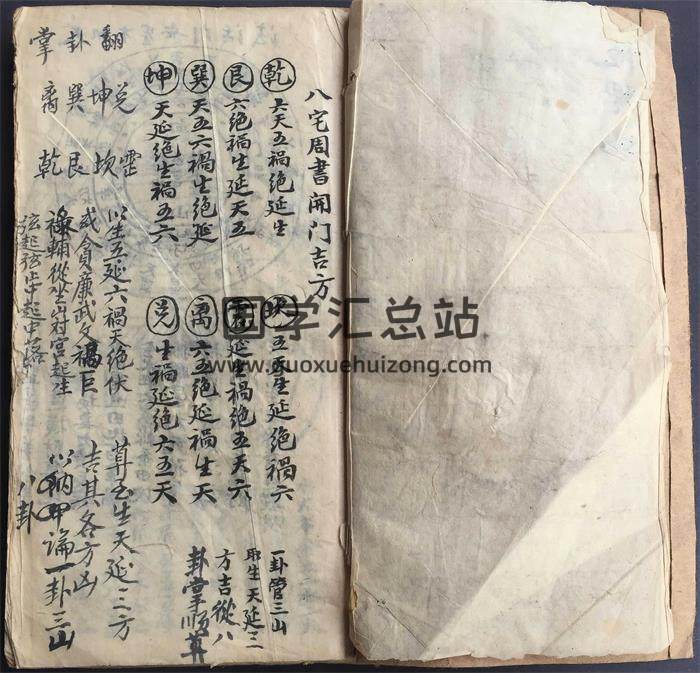 八宅周書開门吉方
乾 六天五禍绝延生
坎 五天生延绝禍六
艮 六绝禍生延天五
震 延生禍绝五天六
巽 天五六禍生绝延
离 六五绝延禍生天
坤 天延绝生禍五六
兑 生禍延绝六五天
一卦管三山
取生天延三
方吉從八
卦掌順算
翻卦掌
兑坤巽离
坎艮乾
以生五延六禍天绝伏
貪廉武文 巨
輔從坐山对宫起生
弦起弦 起中落
算至生天延三方
吉其各方凶
以纳甲論一卦三山
八卦
国学汇总站
www.guoxuehuizong.com